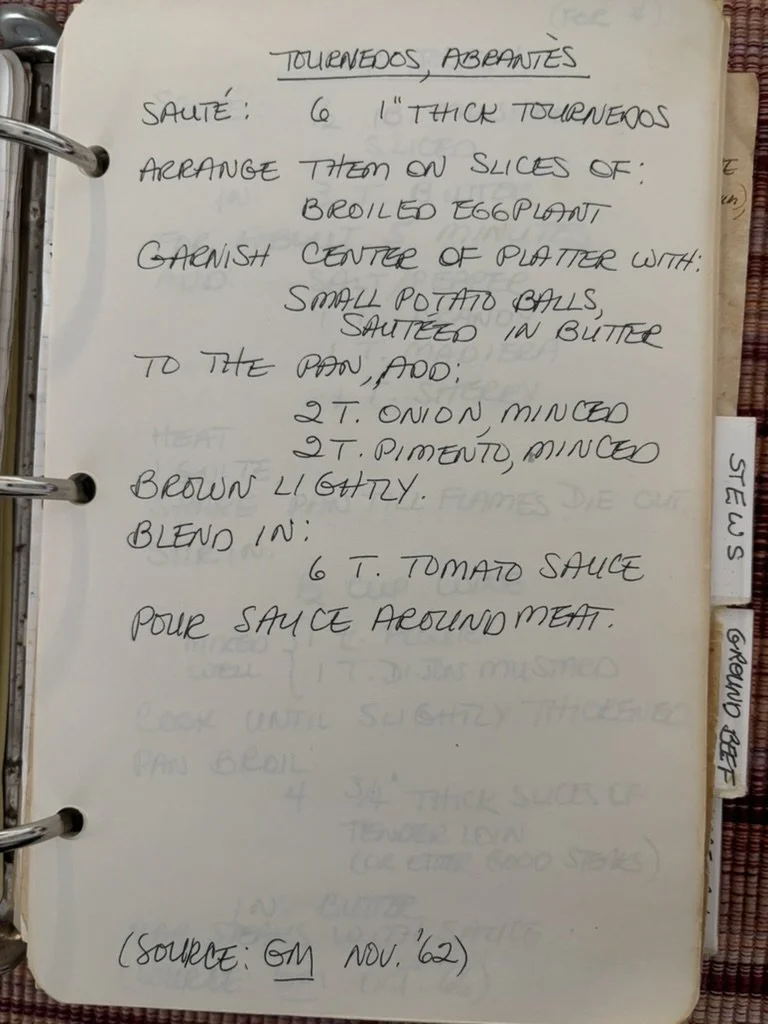 TOURNEDOS, ABRANTÈS
SAUTÉ: 6 1" THICK TOURNEDOS
ARRANGE THEM ON SLICES OF:
BROILED EGGPLANT
GARNISH CENTER OF PLATTER WITH:
SMALL POTATO BALLS,
SAUTÉED IN BUTTER
TO THE PAN, ADD:
2 T. ONION, MINCED
2 T. PIMENTO, MINCED
BROWN LIGHTLY.
BLEND IN:
6 T. TOMATO SAUCE
POUR SAUCE AROUND MEAT.
(SOURCE: GM NOV. '62)
STEWS
GROUND BEEF